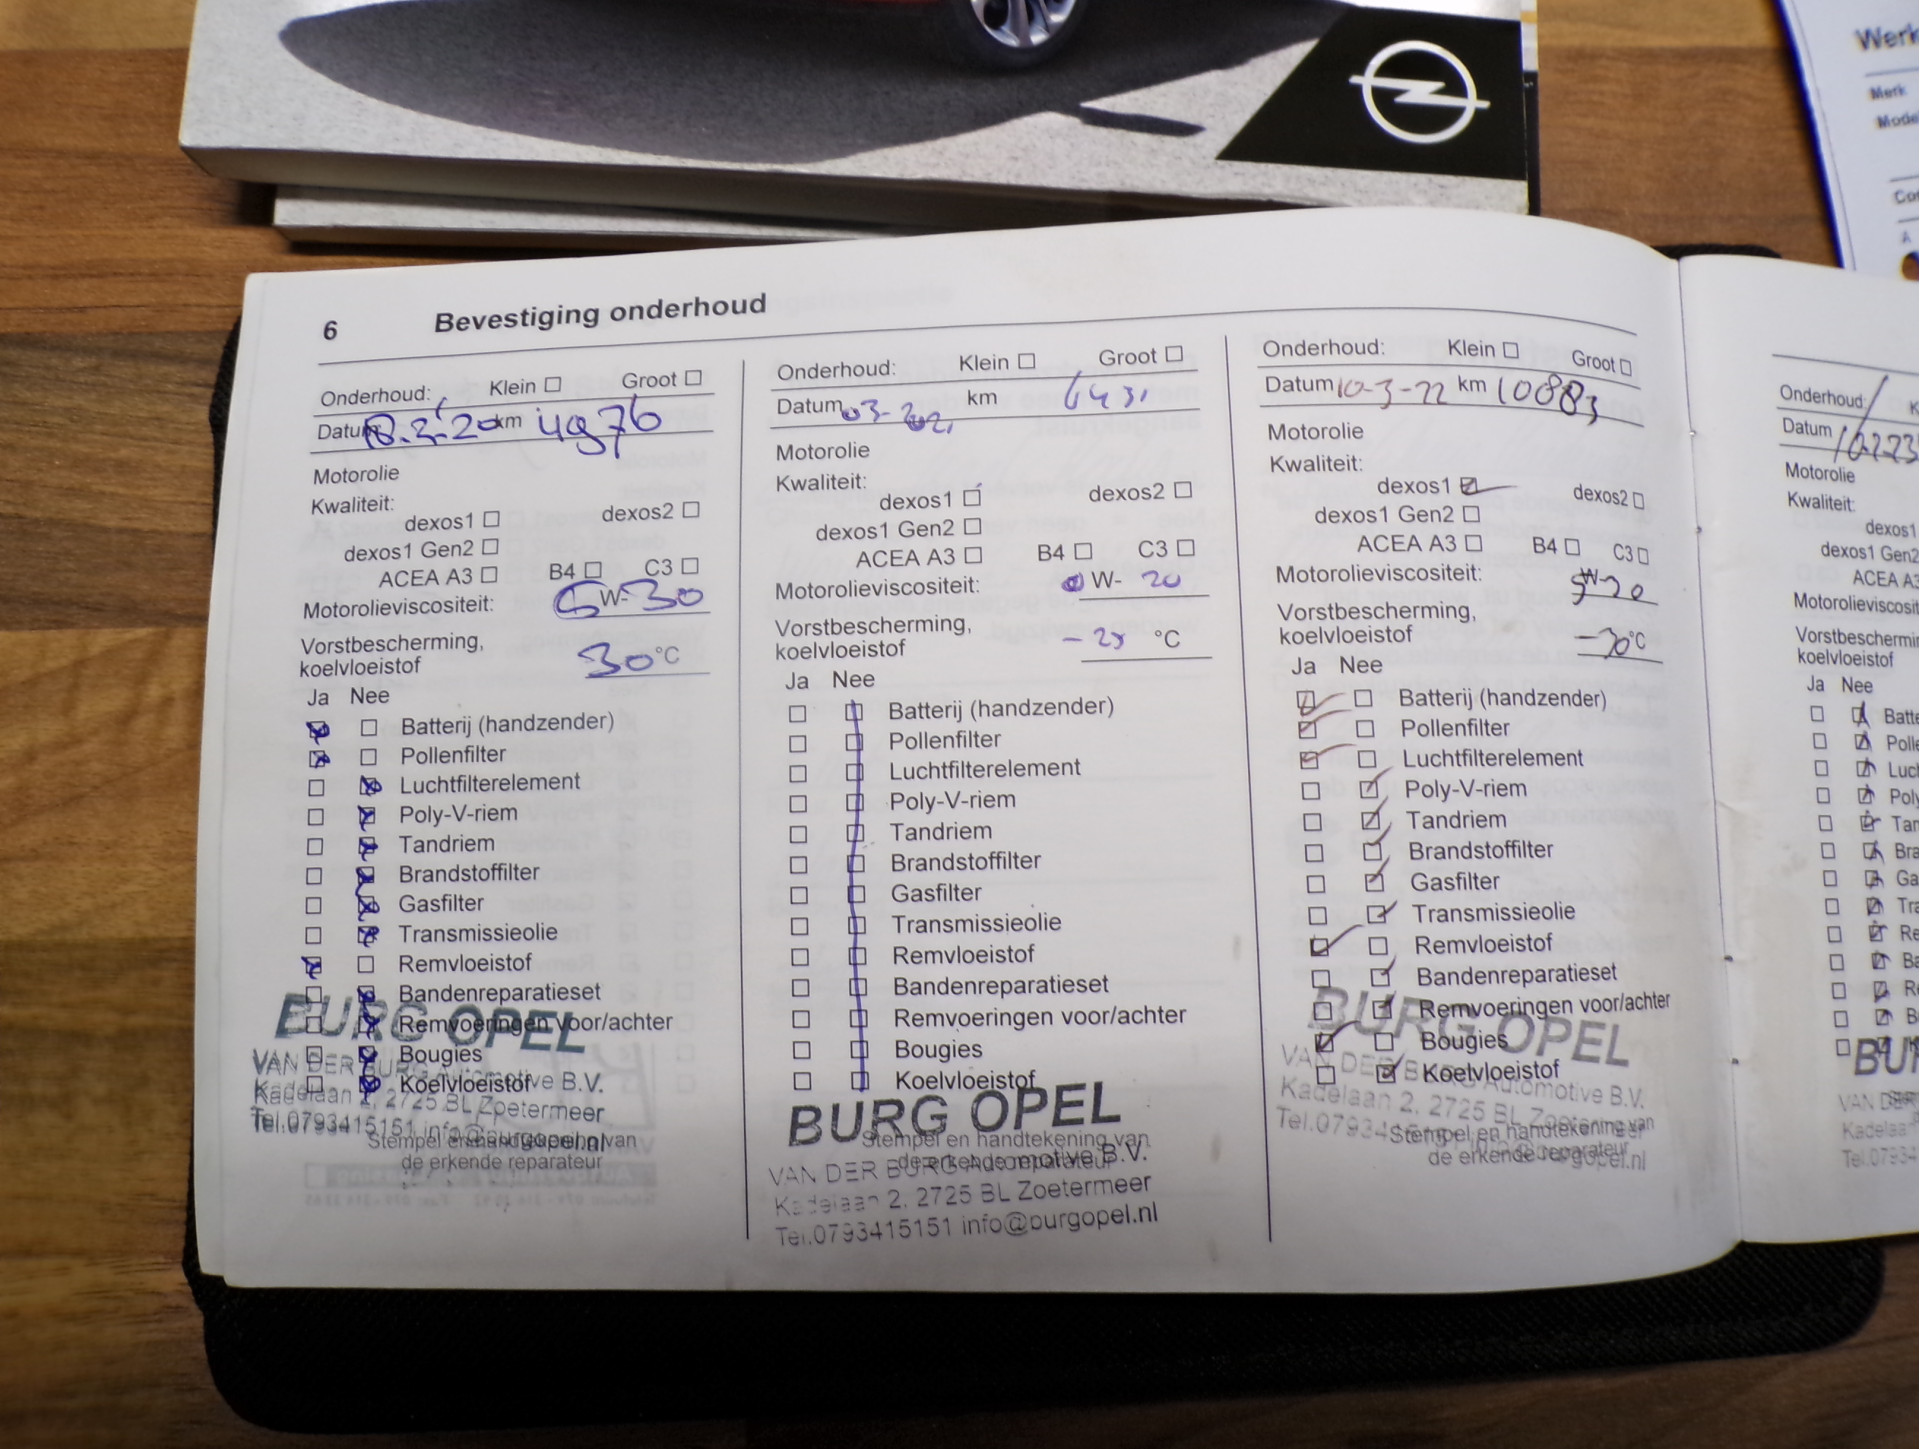 Werk
Merk
Mode
6 Bevestiging onderhoud
Onderhoud: Klein Groot
Datum km 4976
Motorolie
Kwaliteit:
dexos1 dexos2
dexos1 Gen2
ACEA A3 B4 C3
Motorolieviscositeit: W-30
Vorstbescherming,
koelvloeistof 30 °C
Ja Nee
Batterij (handzender)
Pollenfilter
Luchtfilterelement
Poly-V-riem
Tandriem
Brandstoffilter
Gasfilter
Transmissieolie
Remvloeistof
Bandenreparatieset
Remvoeringen voor/achter
Bougies
Koelvloeistof
BURG OPEL
VAN DER BURG Automotive B.V.
Kadelaan 2, 2725 BL Zoetermeer
Tel.0793415151 info@burgopel.nl
Stempel en handtekening van
de erkende reparateur
Onderhoud: Klein Groot
Datum km 6431
Motorolie
Kwaliteit:
dexos1 dexos2
dexos1 Gen2
ACEA A3 B4 C3
Motorolieviscositeit: 0 W- 20
Vorstbescherming,
koelvloeistof °C
Ja Nee
Batterij (handzender)
Pollenfilter
Luchtfilterelement
Poly-V-riem
Tandriem
Brandstoffilter
Gasfilter
Transmissieolie
Remvloeistof
Bandenreparatieset
Remvoeringen voor/achter
Bougies
Koelvloeistof
BURG OPEL
Stempel en handtekening van
de erkende reparateur
VAN DER BURG Automotive B.V.
Kadelaan 2, 2725 BL Zoetermeer
Tel.0793415151 info@burgopel.nl
Onderhoud: Klein Groot
Datum 10-3-22 km 10883
Motorolie
Kwaliteit:
dexos1 dexos2
dexos1 Gen2
ACEA A3 B4 C3
Motorolieviscositeit: W-20
Vorstbescherming,
koelvloeistof -30 °C
Ja Nee
Batterij (handzender)
Pollenfilter
Luchtfilterelement
Poly-V-riem
Tandriem
Brandstoffilter
Gasfilter
Transmissieolie
Remvloeistof
Bandenreparatieset
Remvoeringen voor/achter
Bougies
Koelvloeistof
BURG OPEL
VAN DER BURG Automotive B.V.
Kadelaan 2, 2725 BL Zoetermeer
Stempel en handtekening van
de erkende reparateur
Onderhoud: K
Datum
Motorolie
Kwaliteit:
dexos1
dexos1 Gen2
ACEA A3
Motorolieviscosit
Vorstbeschermin
koelvloeistof
Ja Nee
Batte
Polle
Luch
Poly
Tan
Bra
Ga
Tra
Re
Ba
Re
B
K
BU
VAN DER
Kadelaa
Tel.0793